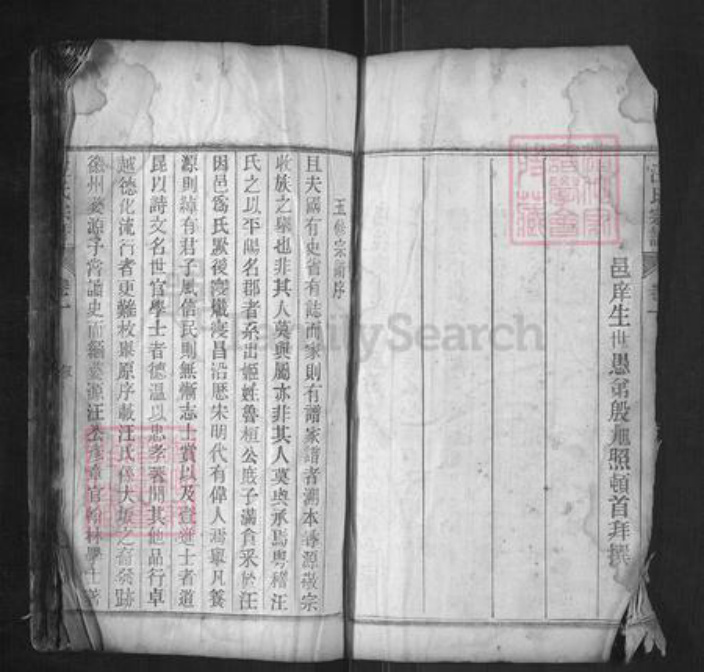 汪氏宗譜
卷一
邑庠生世愚弟殷 照頓首拜撰
五修宗譜序
且夫國有史省有誌而家則有譜家譜者溯本尋源敬宗
收族之舉也非其人莫與屬亦非其人莫與承焉粵稽汪
氏之以平陽名郡者系出姬姓魯桓公庶子滿食采於汪
因邑為氏厥後寖熾寖昌沿歷宋明代有偉人焉舉凡養
源則綽有君子風信民則無慚志士賞以及 進士者道
昆以詩文名世官學士者德溫以忠孝 聞其他品行卓
越德化流行者更難枚舉原序載汪氏係大坂之裔發跡
徽州婺源予嘗讀史而緬婺源汪公彥章官翰林學士著
FamilySearch